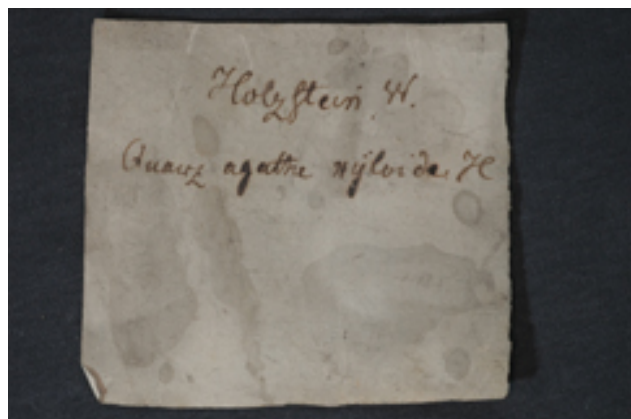 Holzstein W.
Quarz agathe xyloide. H